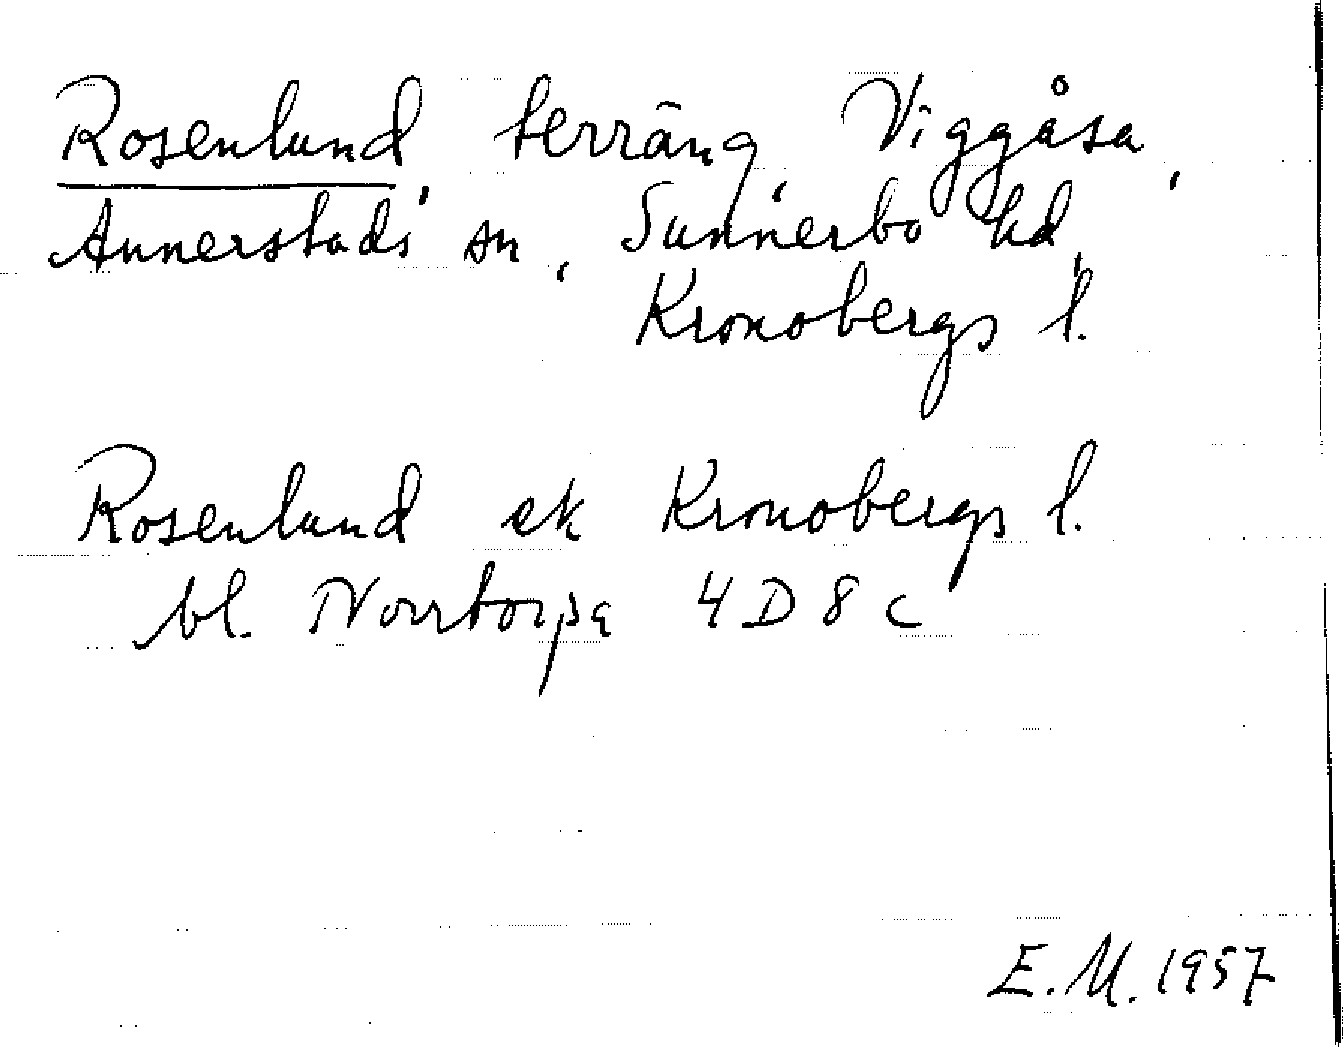 Rosenlund, terräng, Viggåsa,
Annerstads sn, Sunnerbo hd,
Kronobergs l.
Rosenlund ek Kronobergs l.
bl. Norrtorpa 4D8c
E.M. 1957